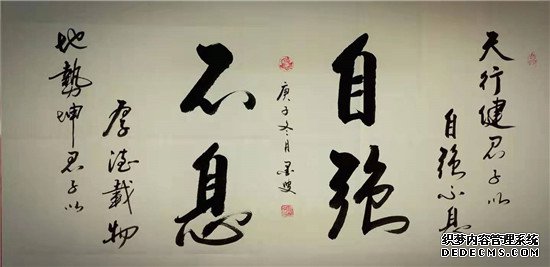 天行健君子以
自强不息
自强
不息
庚子冬月墨叟
地勢坤君子以
厚德載物
织梦内容管理系统
DEDECMS.COM